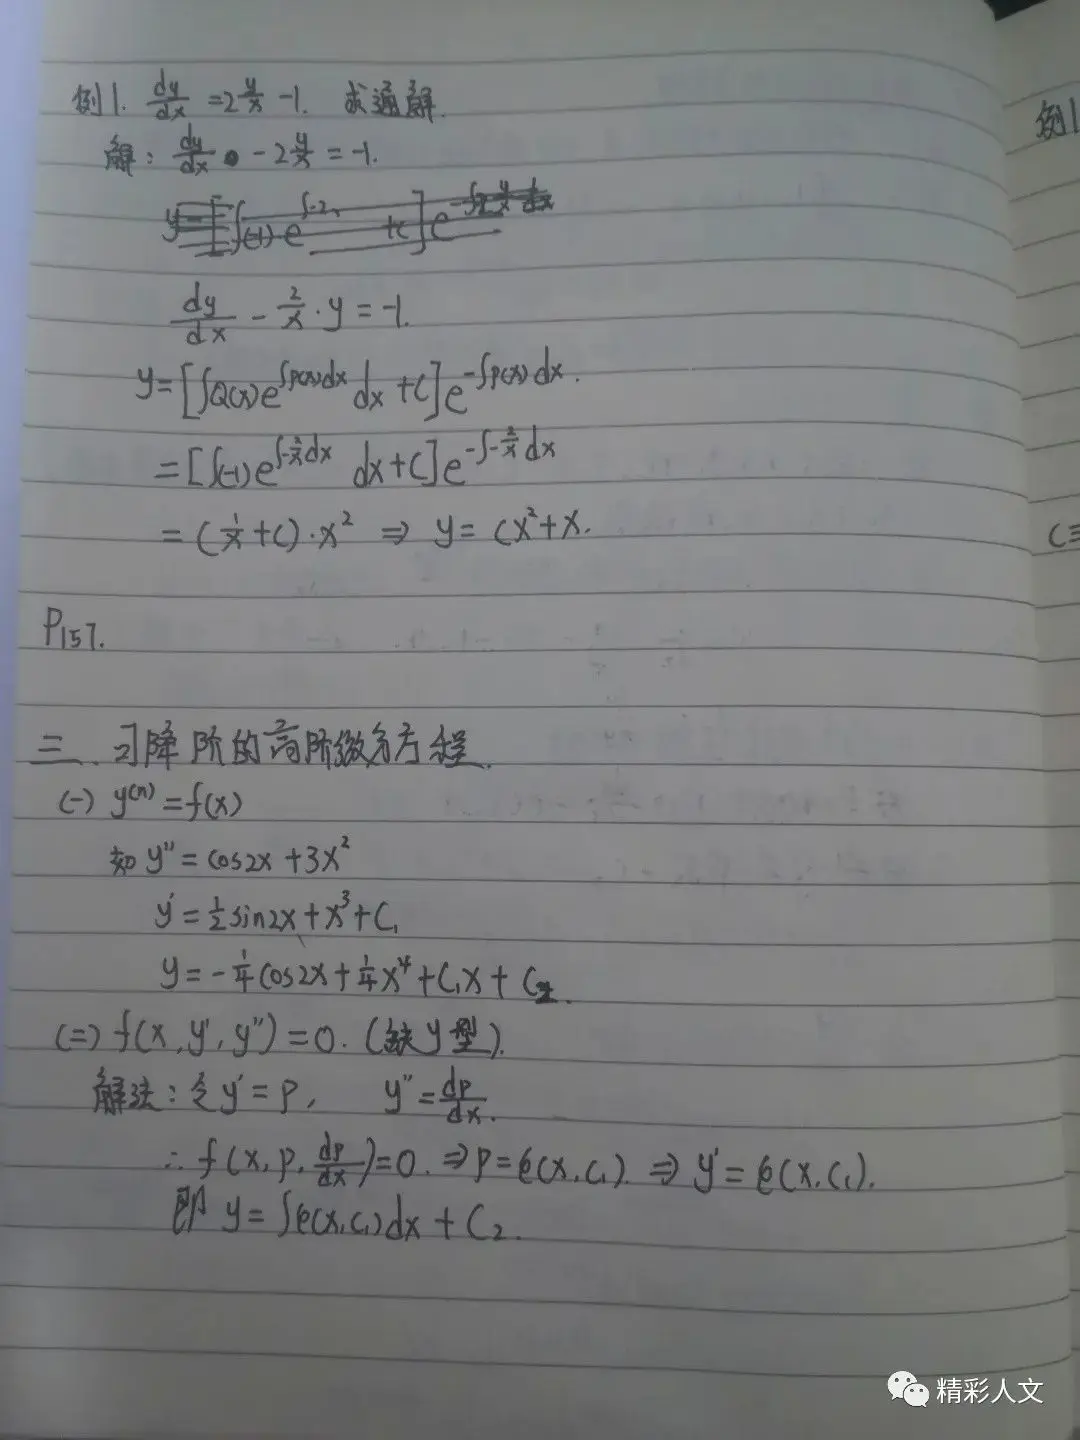 例1. dy/dx = 2 y/x -1. 求通解.
解: dy/dx - 2 y/x = -1.
dy/dx - 2/x · y = -1.
y = [∫Q(x)e^{∫p(x)dx} dx + C]e^{-∫p(x)dx}.
= [∫(-1)e^{∫-2/x dx} dx + C]e^{-∫-2/x dx}
= (1/x + C)·x² ⇒ y = Cx² + x.
P157.
三、可降阶的高阶微分方程.
(一) y⁽ⁿ⁾ = f(x)
如 y'' = cos2x + 3x²
y' = 1/2 sin2x + x³ + C₁
y = -1/4 cos2x + 1/4 x⁴ + C₁x + C₂.
(二) f(x, y', y'') = 0. (缺y型).
解法: 令 y' = p, y'' = dp/dx.
∴ f(x, p, dp/dx) = 0. ⇒ p = φ(x, C₁). ⇒ y' = φ(x, C₁).
即 y = ∫φ(x, C₁)dx + C₂.
例1
(三
精彩人文